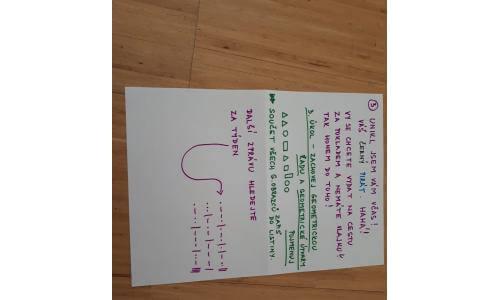 ③ UNIKL JSEM VÁM VČAS!
VÁŠ ČERNÝ PIRÁT HAHA!!
VY SE CHCETE VYDAT NA CESTU
ZA POKLADEM A NEMÁTE VLAJKU?
TAK HONEM DO TOHO!
3. ÚKOL - ZACHOVEJ GEOMETRICKOU
ŘADU A GEOMETRICKÉ ÚTVARY
POJMENUJ
△△○□△□▯○○
SOUČET VŠECH G. OBRAZCŮ ZAPIŠ
DO LISTINY.
DALŠÍ ZPRÁVU HLEDEJTE
ZA TÝDEN